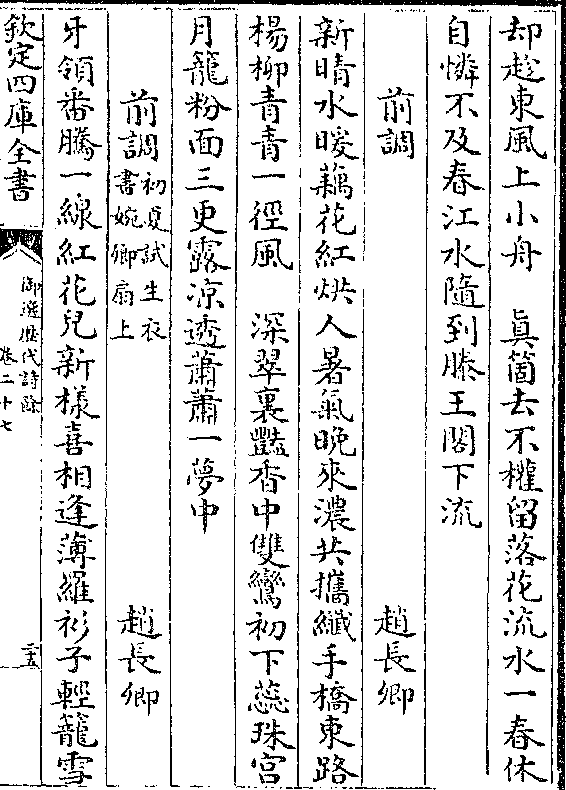 却趁東風上小舟　真箇去不權留落花流水一春休
自憐不及春江水隨到滕王閣下流
前調　趙長卿
新晴水暖藕花紅烘人暑氣晚來濃共攜纖手橋東路
楊柳青青一徑風　深翠裏豔香中雙鸞初下蕊珠宮
月籠粉面三更露凉透蕭蕭一夢中
前調初夏試生衣書婉卿扇上　趙長卿
牙領番騰一線紅花兒新様喜相逢薄羅衫子輕籠雪
欽定四庫全書
御選歴代詩餘
卷二十七
三五